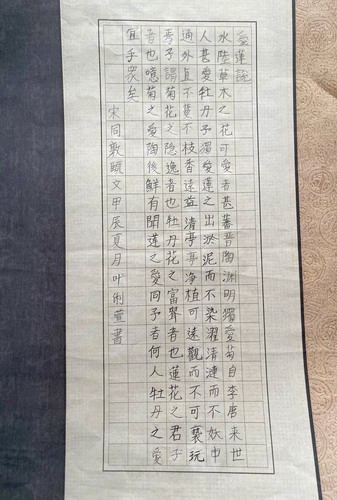 愛蓮説
水陸草木之花可愛者甚蕃晉陶淵明獨愛菊自李唐来世
人甚愛牡丹予獨愛蓮之出淤泥而不染濯清漣而不妖中
通外直不蔓不枝香遠益清亭亭净植可遠觀而不可褻玩
焉予謂菊花之隐逸者也牡丹花之富貴者也蓮花之君子
者也噫菊之愛陶後鮮有聞蓮之愛同予者何人牡丹之愛
宜乎衆矣
宋周敦頤文甲辰夏月叶俐萱書